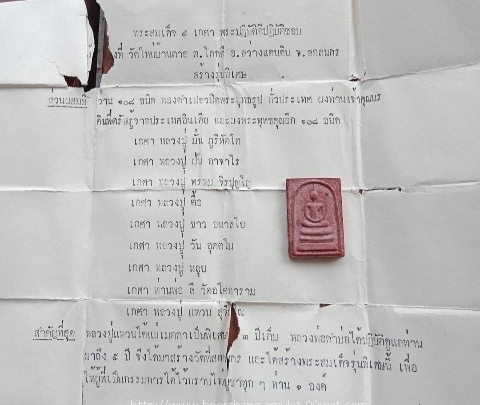 พระสมเด็จ ๙ เกศา พระปฏิบัติดีปฏิบัติชอบ
ที่ วัดใหม่บ้านตาล ต.โคกสี อ.สว่างแดนดิน จ.สกลนคร
สร้างรุ่นพิเศษ
ส่วนผสมมี ว่าน ๑๐๘ ชนิด ทองคำเปลวปิดพระพุทธรูป ทั่วประเทศ ผงท่านเจ้าคุณนร
ดินที่ตรัสรู้จากประเทศอินเดีย และผงพระพุทธคุณอีก ๑๐๘ ชนิด
เกศา หลวงปู่ มั่น ภูริทัตโต
เกศา หลวงปู่ ฝั้น อาจาโร
เกศา หลวงปู่ พรหม จิรปุญโญ
เกศา หลวงปู่ ตื้อ
เกศา หลวงปู่ ขาว อนาลโย
เกศา หลวงปู่ วัน อุตตโม
เกศา หลวงปู่ หลุย
เกศา ท่านพ่อ ลี วัดอโศการาม
เกศา หลวงปู่ แหวน
สำคัญที่สุด หลวงปู่แหวนได้แผ่เมตตาเป็นพิเศษ ๓ ปีเต็ม หลวงพ่อคำบ่อได้ปฏิบัติดูแลท่าน
มาถึง ๕ ปี จึงได้มาสร้างวัดที่สกลนคร และได้สร้างพระสมเด็จรุ่นพิเศษนี้ เพื่อ
ให้ผู้ที่เป็นกรรมการได้ไว้กราบไหว้บูชาทุก ๆ ท่าน ๑ องค์